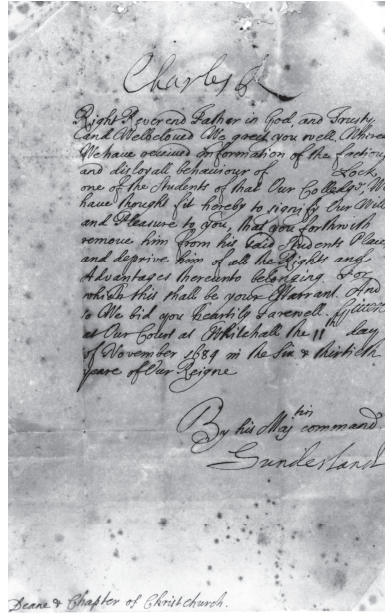 Charles R
Right Reverend Father in God, and Trusty
and Welbeloved We greet you well. Whereas
We have received Information of the factious
and disloyall behaviour of Lock,
one of the Students of that Our Colledge, We
have thought fit hereby to signify Our Will
and Pleasure to you, that you forthwith
remove him from his said Students Place,
and deprive him of all the Rights and
Advantages thereunto belonging. For
which this shall be your Warrant. And
so We bid you heartily Farewell. Given
at Our Court at Whitehall the 11th day
of November 1684 in the Six & thirtieth
yeare of Our Reigne
By his Maj ties command.
Sunderland
Deane & Chapter of Christchurch.